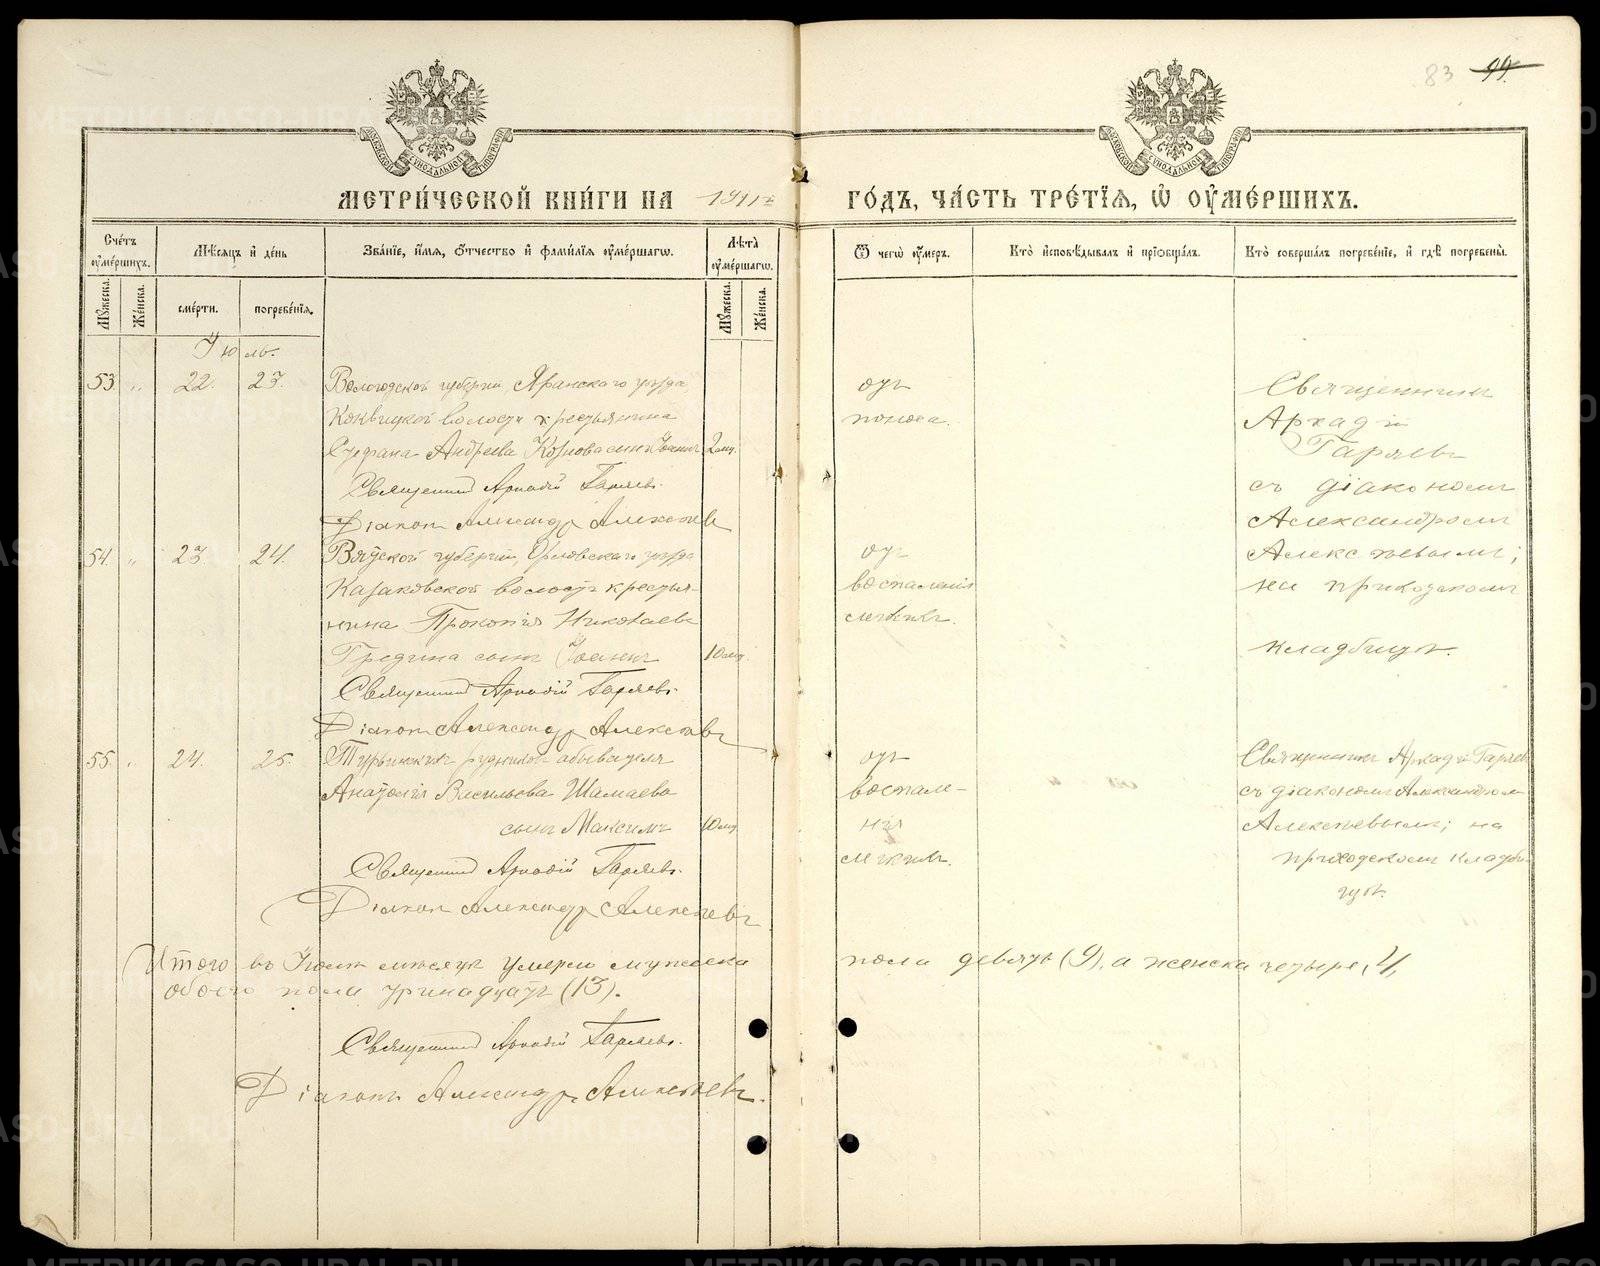 83 99.
МЕТРИ́ЧЕСКОЙ КНИ́ГИ НА 1911 г. ГО́ДЪ, ЧА́СТЬ ТРЕ́ТЇѦ, Ѡ҆ ОУ҆МЕ́РШИХЪ.
Сче́тъ оу҆ме́ршихъ.
Мѣ́сѧцъ и҆ де́нь
Зва́нїе, и҆́мѧ, ѻ҆́тчество и҆ фами́лїѧ оу҆ме́ршагѡ.
Лѣ́та оу҆ме́ршагѡ.
Ѿ чегѡ̀ оу҆́меръ.
Кто̀ и҆сповѣ́дывалъ и҆ прїѡбща́лъ.
Кто̀ соверша́лъ погребе́нїе, и҆ гдѣ̀ погребены̀.
Мꙋ́жеска.
Же́нска.
сме́рти.
погребе́нїѧ.
Мꙋ́жеска.
Же́нска.
Іюль.
53 " 22. 23. Вологодской губерніи, Яранского уѣзда,
волости крестьянина
Стефана Андреева сынъ Іоаннъ 2 мц.
Священникъ Аркадій Гаряевъ.
Діаконъ Александръ Алексѣевъ
отъ
поноса.
Священникъ
Аркадій
Гаряевъ
съ діакономъ
Александромъ
Алексѣевымъ;
на приходскомъ
кладбищѣ.
54. " 23 24. Вятской губерніи, Орловскаго уѣзда
Казаковской волости крестья-
нина Прокопія Николаева
Гредина сынъ Іоаннъ 10 мц.
Священникъ Аркадій Гаряевъ.
Діаконъ Александръ Алексѣевъ
отъ
воспаленія
легкихъ.
55. " 24. 25. Турьинскихъ рудниковъ обывателя
Анатолія Васильева Шамаева
сынъ Максимъ 10 мц.
Священникъ Аркадій Гаряевъ.
Діаконъ Александръ Алексѣевъ
отъ
воспале-
нія
легкихъ.
Священникъ Аркадій Гаряевъ
съ діакономъ Александромъ
Алексѣевымъ; на
приходскомъ кладби-
щѣ.
Итого въ Іюлѣ мѣсяцѣ умерло мужеска пола девять (9), а женска четыре, 4,
обоего пола тринадцать (13).
Священникъ Аркадій Гаряевъ.
Діаконъ Александръ Алексѣевъ.
METRIKI.GASO-URAL.RU